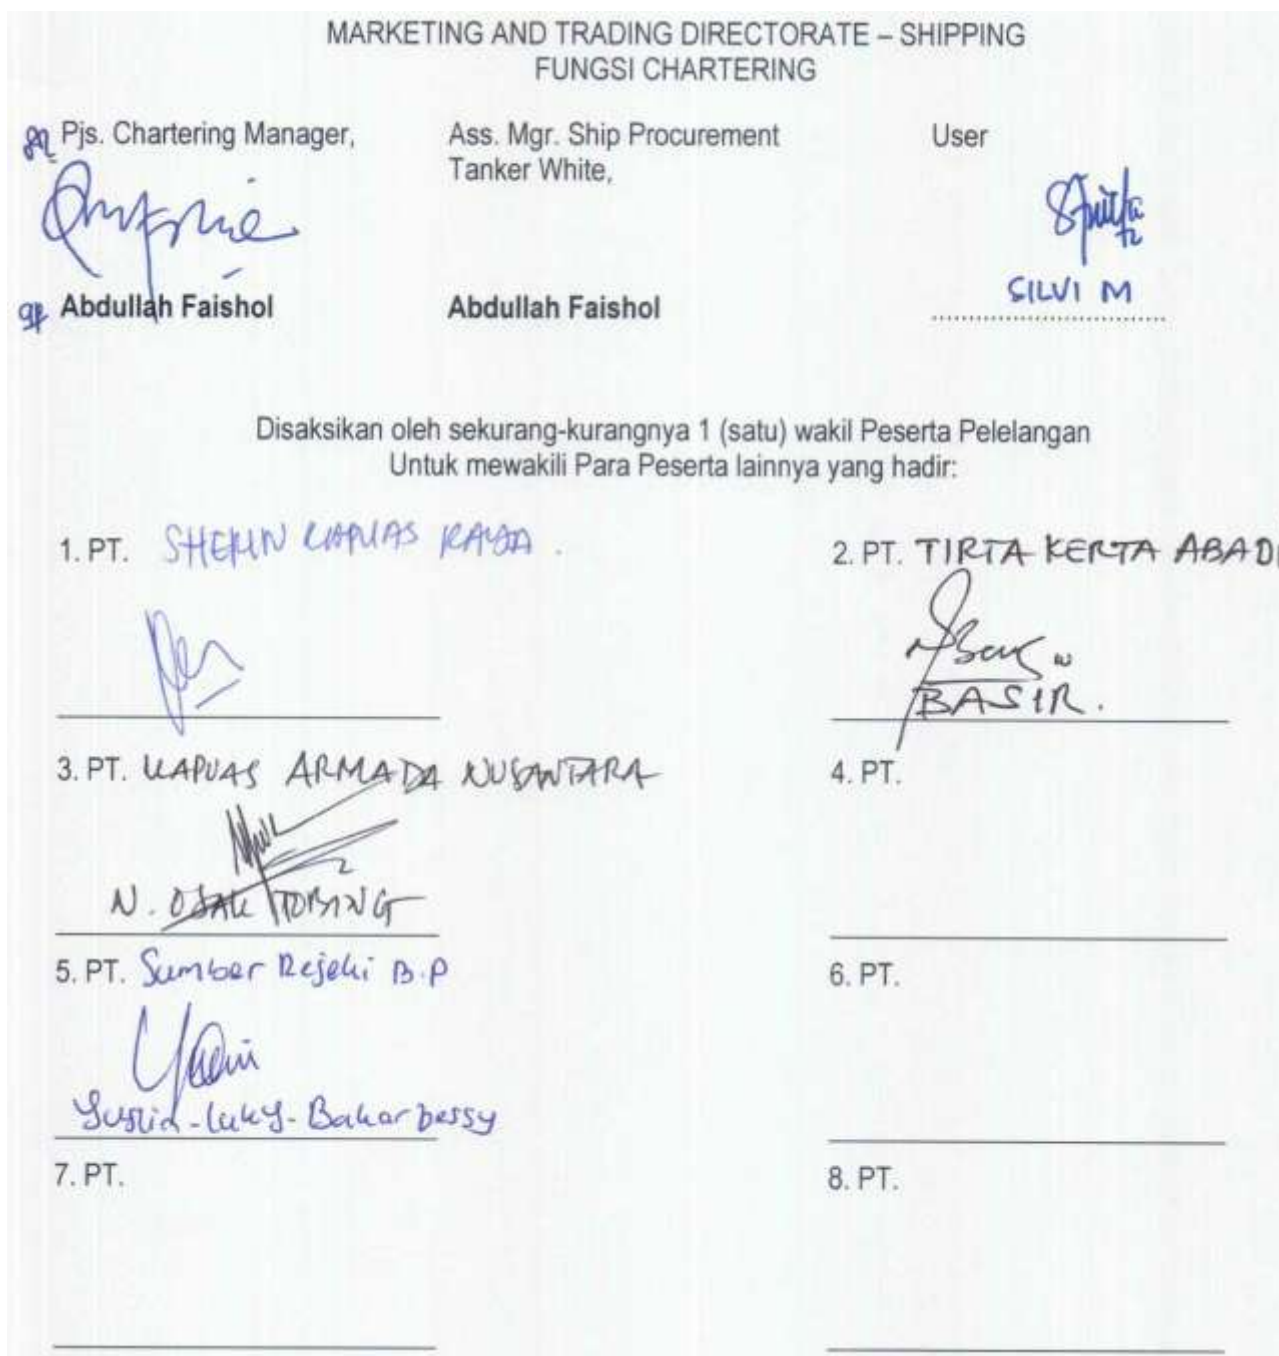 MARKETING AND TRADING DIRECTORATE – SHIPPING
FUNGSI CHARTERING
Pjs. Chartering Manager,
Ass. Mgr. Ship Procurement
Tanker White,
User
SILVI M
Abdullah Faishol
Abdullah Faishol
Disaksikan oleh sekurang-kurangnya 1 (satu) wakil Peserta Pelelangan
Untuk mewakili Para Peserta lainnya yang hadir:
1. PT. KAPUAS RAYA.
2. PT. TIRTA KERTA ABADI
BASIR.
3. PT. KAPUAS ARMADA NUSANTARA
4. PT.
N. OJAK TOBING
5. PT. Sumber Rejeki B.P
6. PT.
Bakarbessy
7. PT.
8. PT.